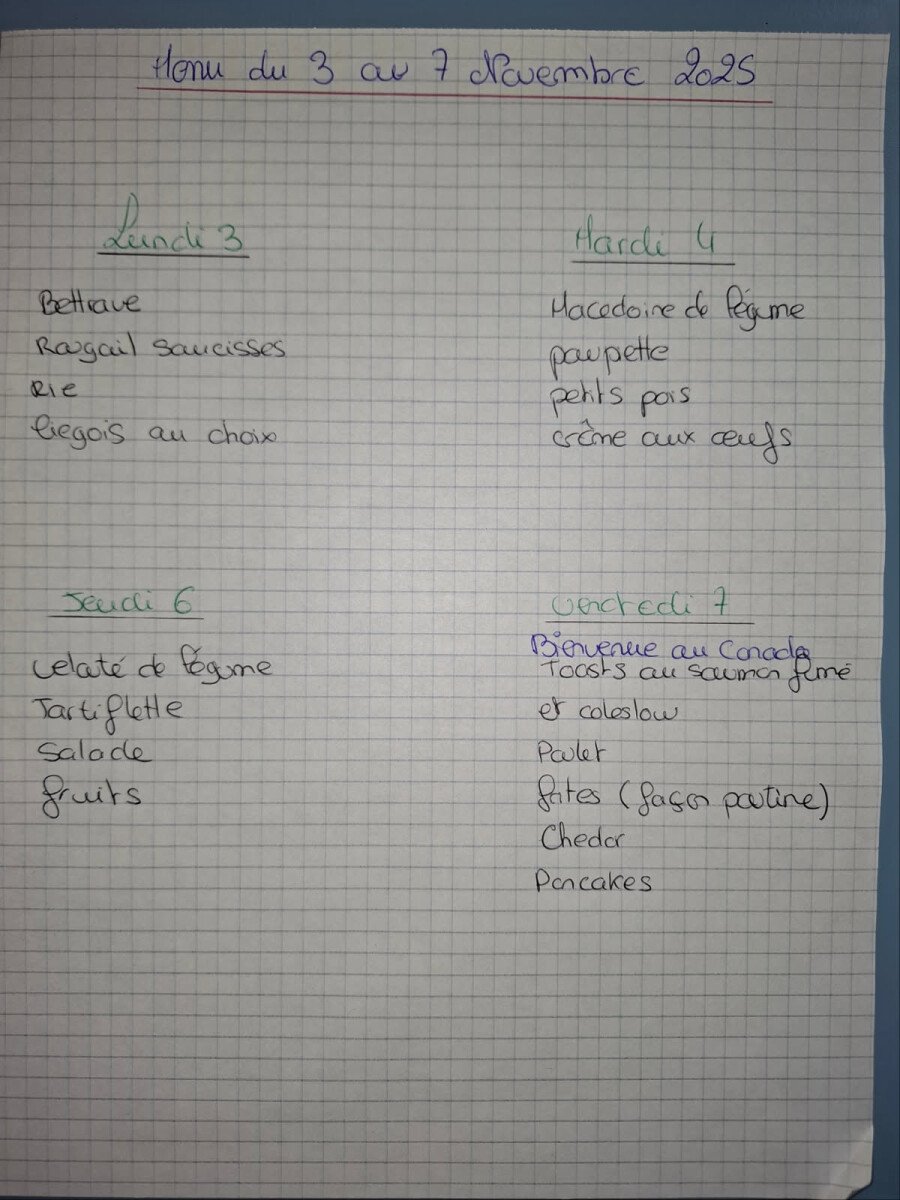 Menu du 3 au 7 Novembre 2025
Lundi 3
Bettrave
Rougail saucisses
Rie
liegois au choix
Mardi 4
Macedoine de légume
paupette
petits pois
crème aux œufs
Jeudi 6
Velouté de légume
Tartiflette
Salade
fruits
Vendredi 7
Bienvenue au Canada
Toasts au saumon fumé
et coleslow
Poulet
frites (façon poutine)
Chedar
Pancakes